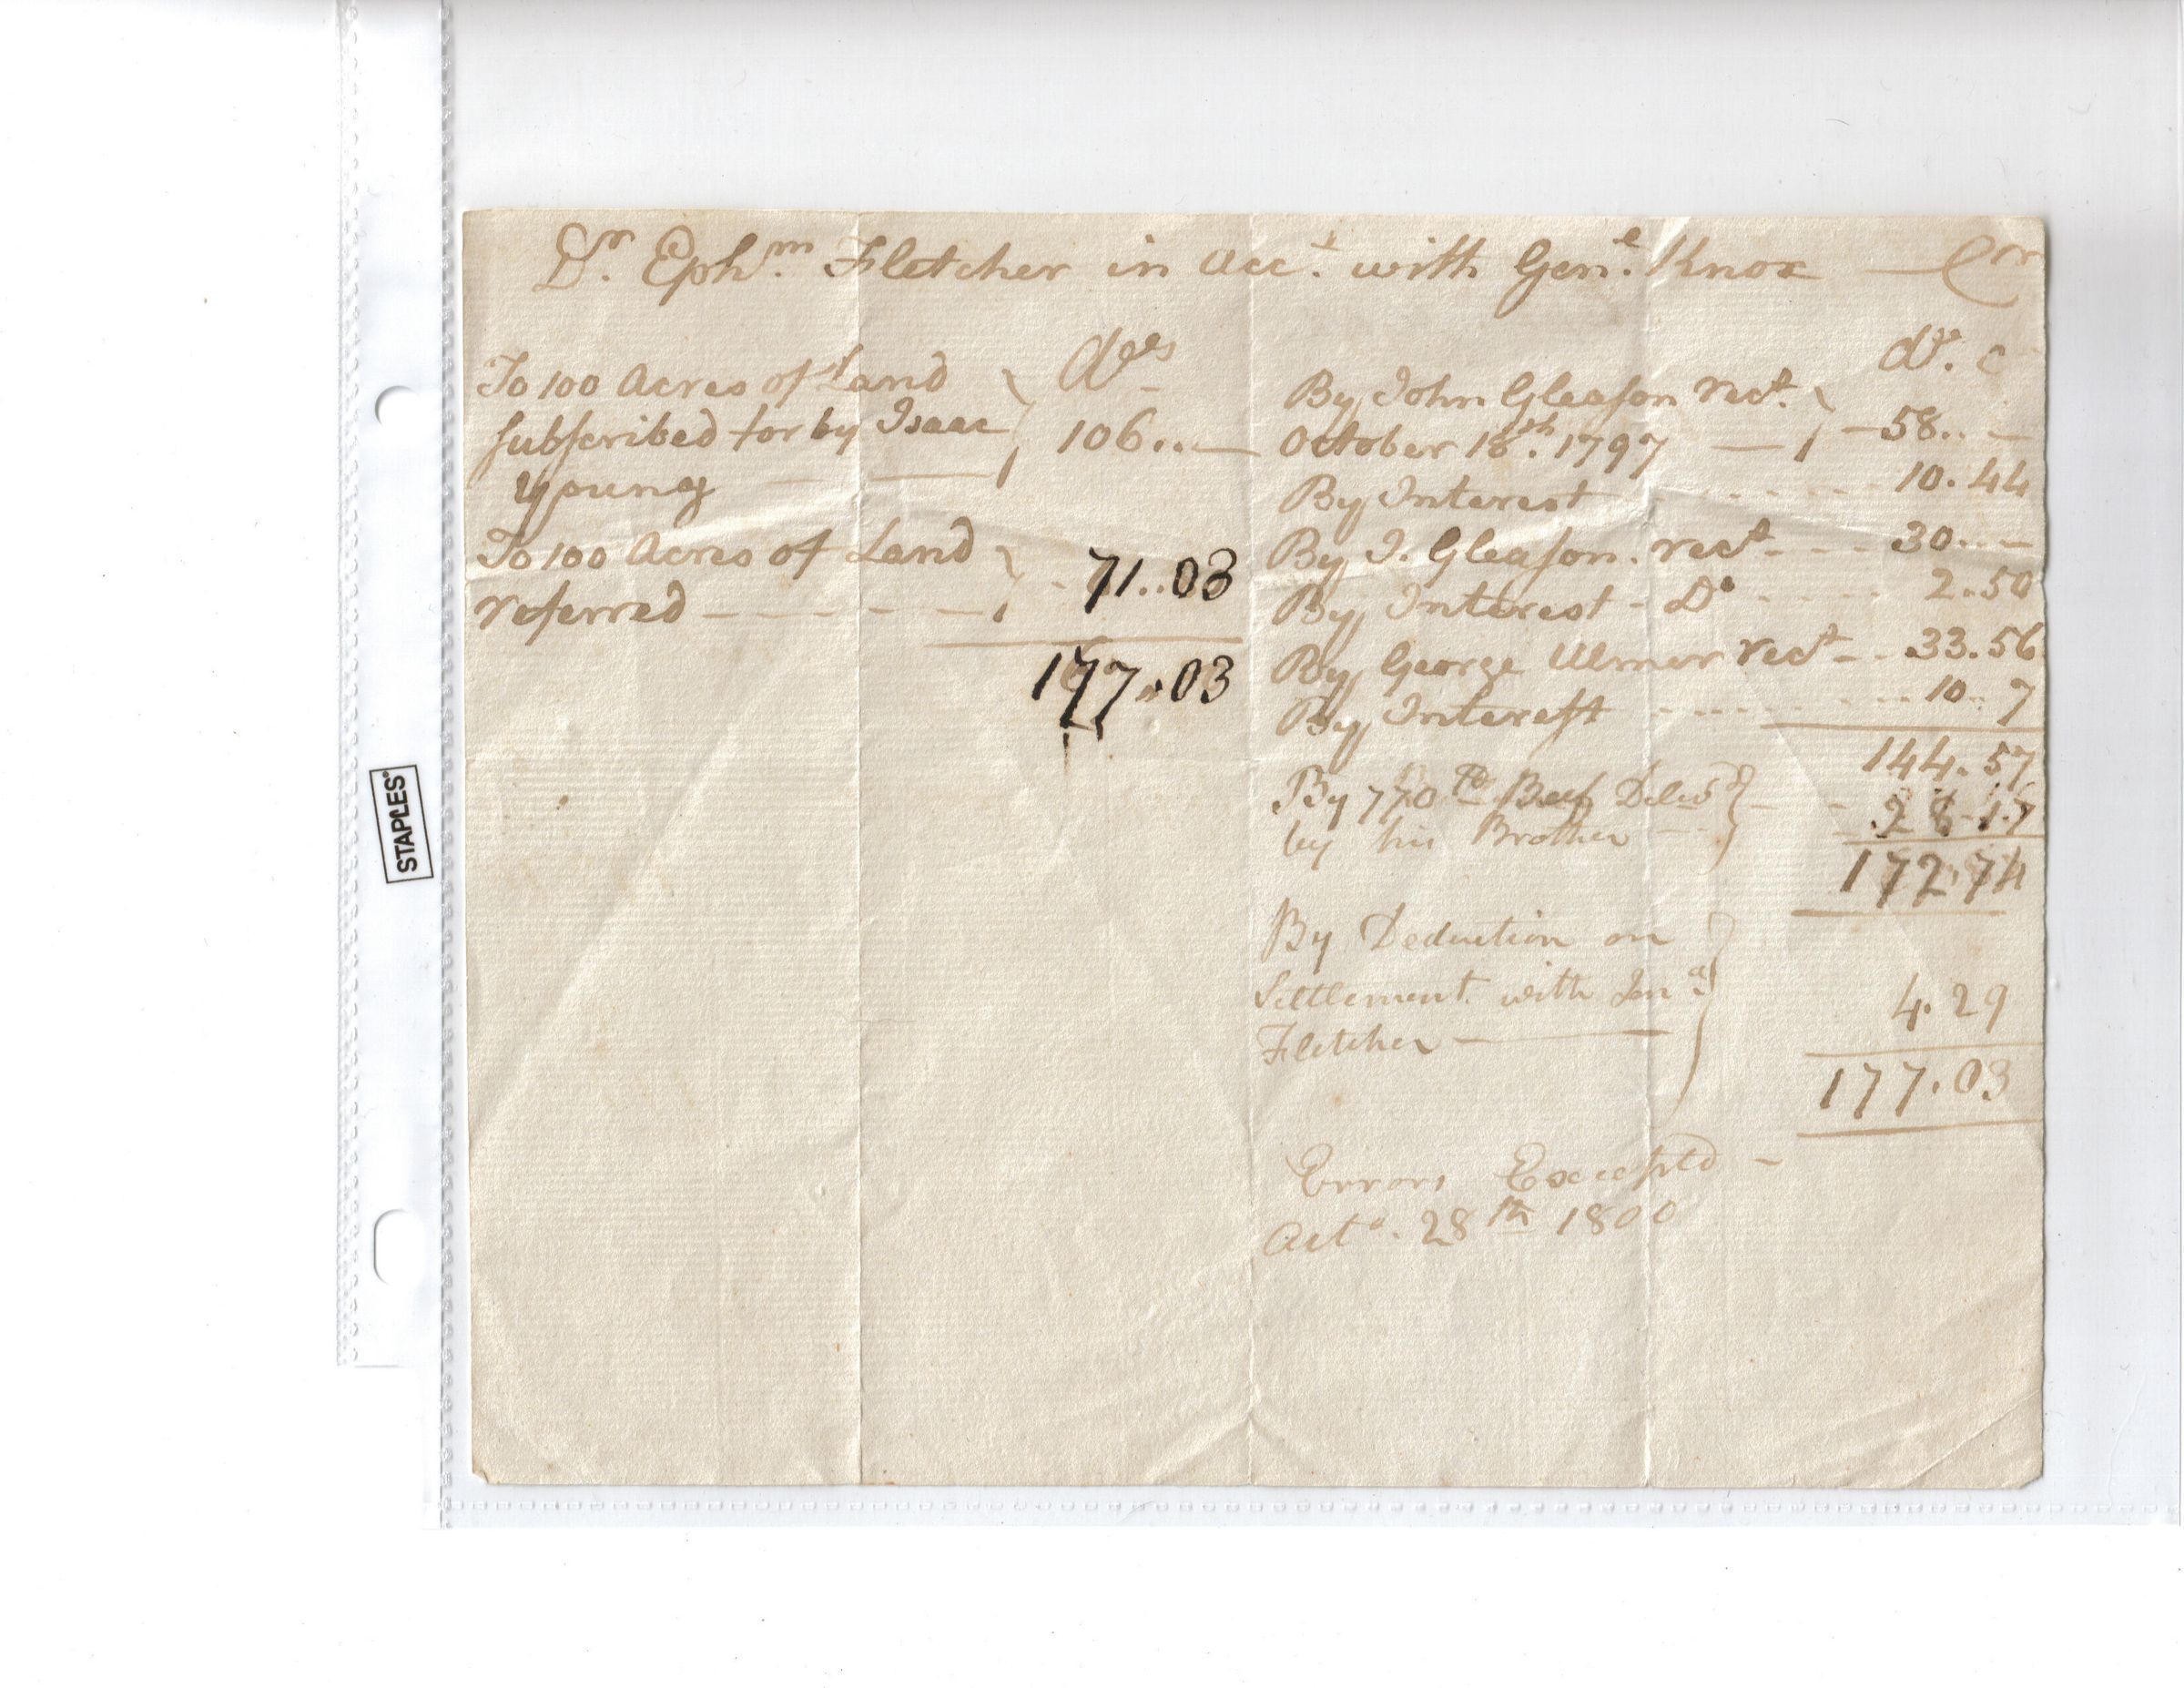 Dr. Ephm. Fletcher in Acct. with Genl. Knox — Crr
Dols
To 100 Acres of Land
subscribed for by Isaac 106..—
Young — —
To 100 Acres of Land
referred - - - - 71..03
177..03
dr. c
By John Gleason rect.
October 18th. 1797 — 58.. —
By Interest - - - - 10.44
By J. Gleason. rect - - - 30.. —
By Interest - Do - - - - 2..50
By George Ulmer rect - - 33.56
By Interest - - - - 10..7
144.57
By 770 lb Beef Delivd - -
by his Brother - - 28-17
172.74
By Deduction on
Settlement with Jona.
Fletcher — 4.29
177.03
Errors Excepted —
Octo. 28th 1800
STAPLES